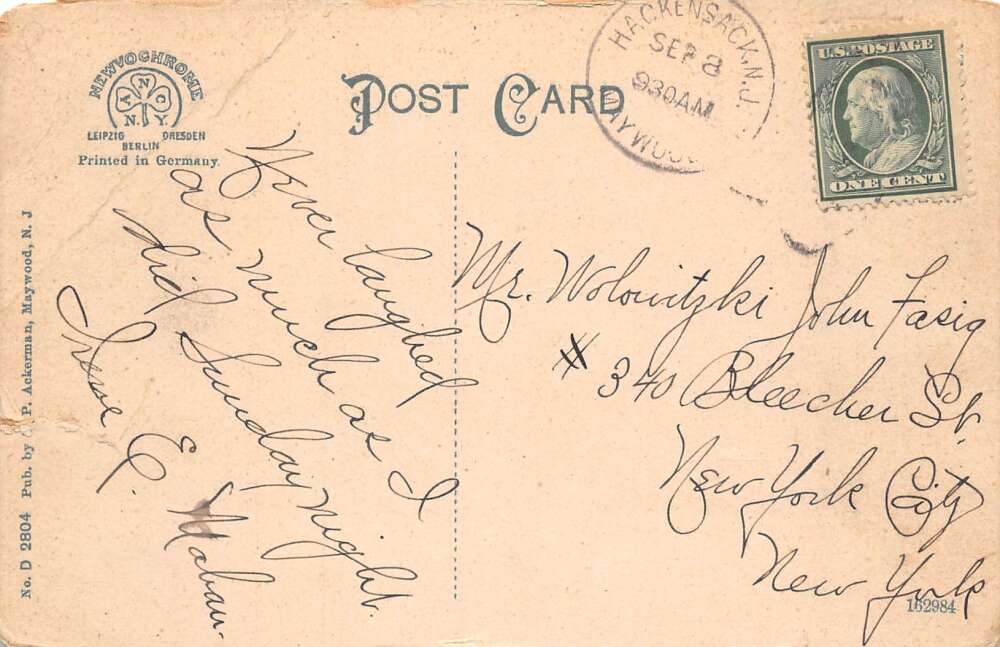 NEWVOCHROME
A N C
N. Y.
LEIPZIG DRESDEN
BERLIN
Printed in Germany.
POST CARD
HACKENSACK, N.J.
SEP 8
930AM
MAYWOOD
U.S. POSTAGE
ONE CENT
Never laughed
as much as I
did Sunday night.
Irene E. Mahan.
Mr. Wolowitzki John Fasig
# 340 Bleecher St.
New York City
New York
No. D 2804 Pub. by P. Ackerman, Maywood, N. J
162984